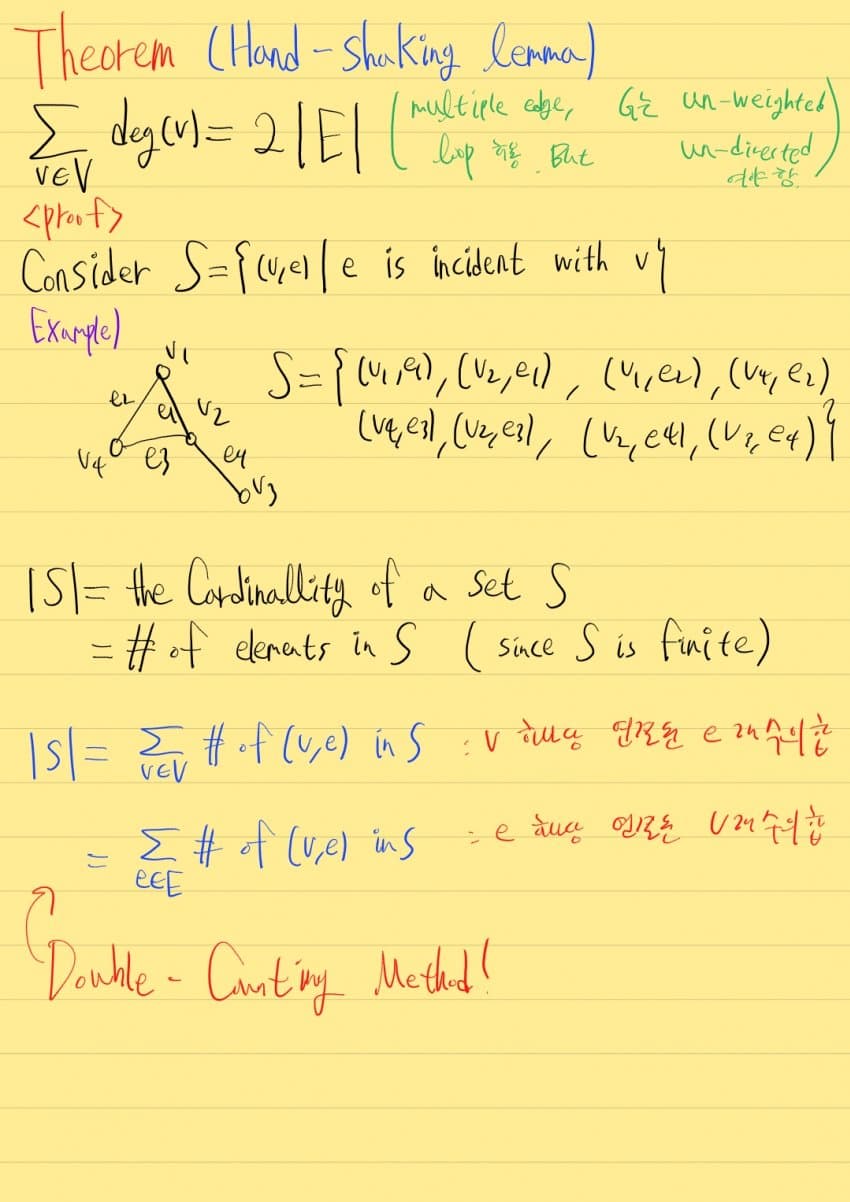 Theorem (Hand-shaking lemma)
∑ deg(v) = 2|E| (multiple edge, G는 un-weighted
v∈V loop 허용. But un-directed
여야 함.)
<proof>
Consider S={(v,e)|e is incident with v}
Example)
v1
e2 e1 v2
v4 e3 e4
v3
S={(v1,e1),(v2,e1), (v1,e2),(v4,e2)
(v4,e3),(v2,e3), (v2,e4),(v3,e4)}
|S|= the Cardinallity of a set S
= # of elements in S (since S is finite)
|S|= ∑ # of (v,e) in S : v 해당 연결된 e 개수의 합
v∈V
= ∑ # of (v,e) in S : e 해당 연결된 v 개수의 합
e∈E
Double-Counting Method!